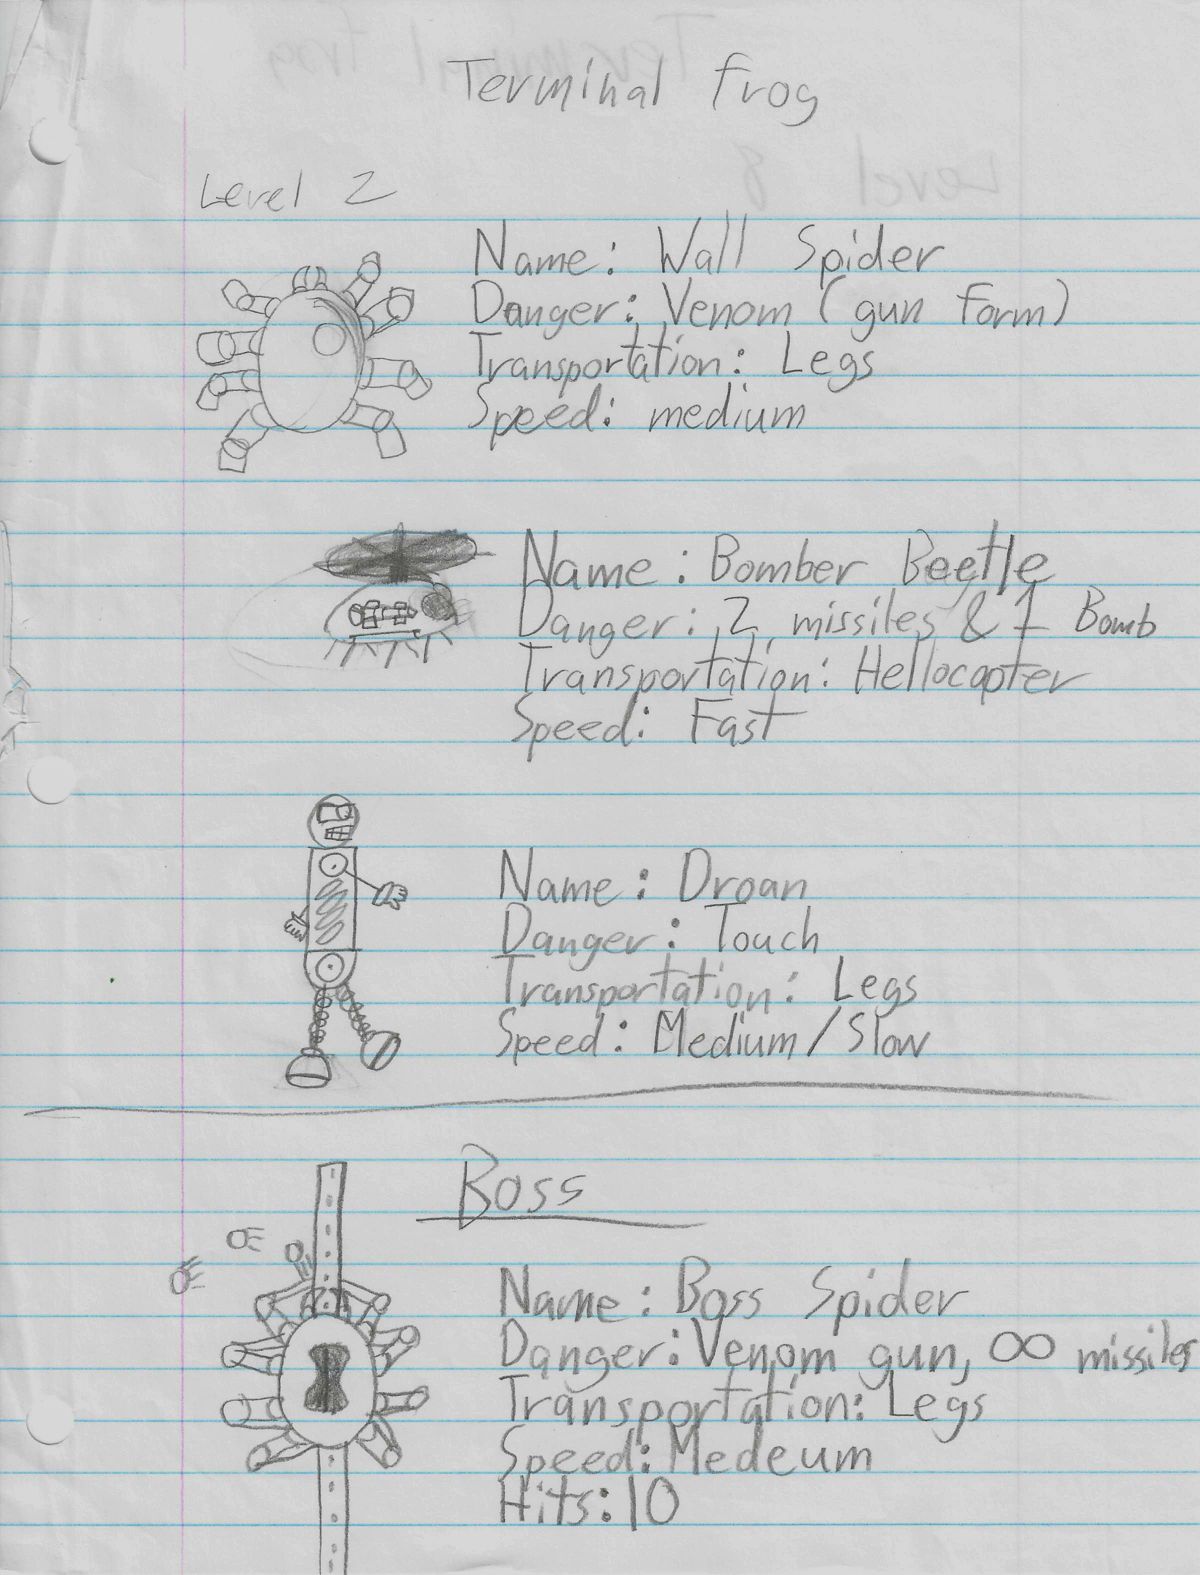 Terminal frog
Level 2
Name: Wall Spider
Danger: Venom (gun form)
Transportation: Legs
Speed: medium
Name: Bomber Beetle
Danger: 2 missiles & 1 Bomb
Transportation: Hellocopter
Speed: Fast
Name: Droan
Danger: Touch
Transportation: Legs
Speed: Medium/Slow
Boss
Name: Boss Spider
Danger: Venom gun, ∞ missiles
Transportation: Legs
Speed: Medeum
Hits: 10